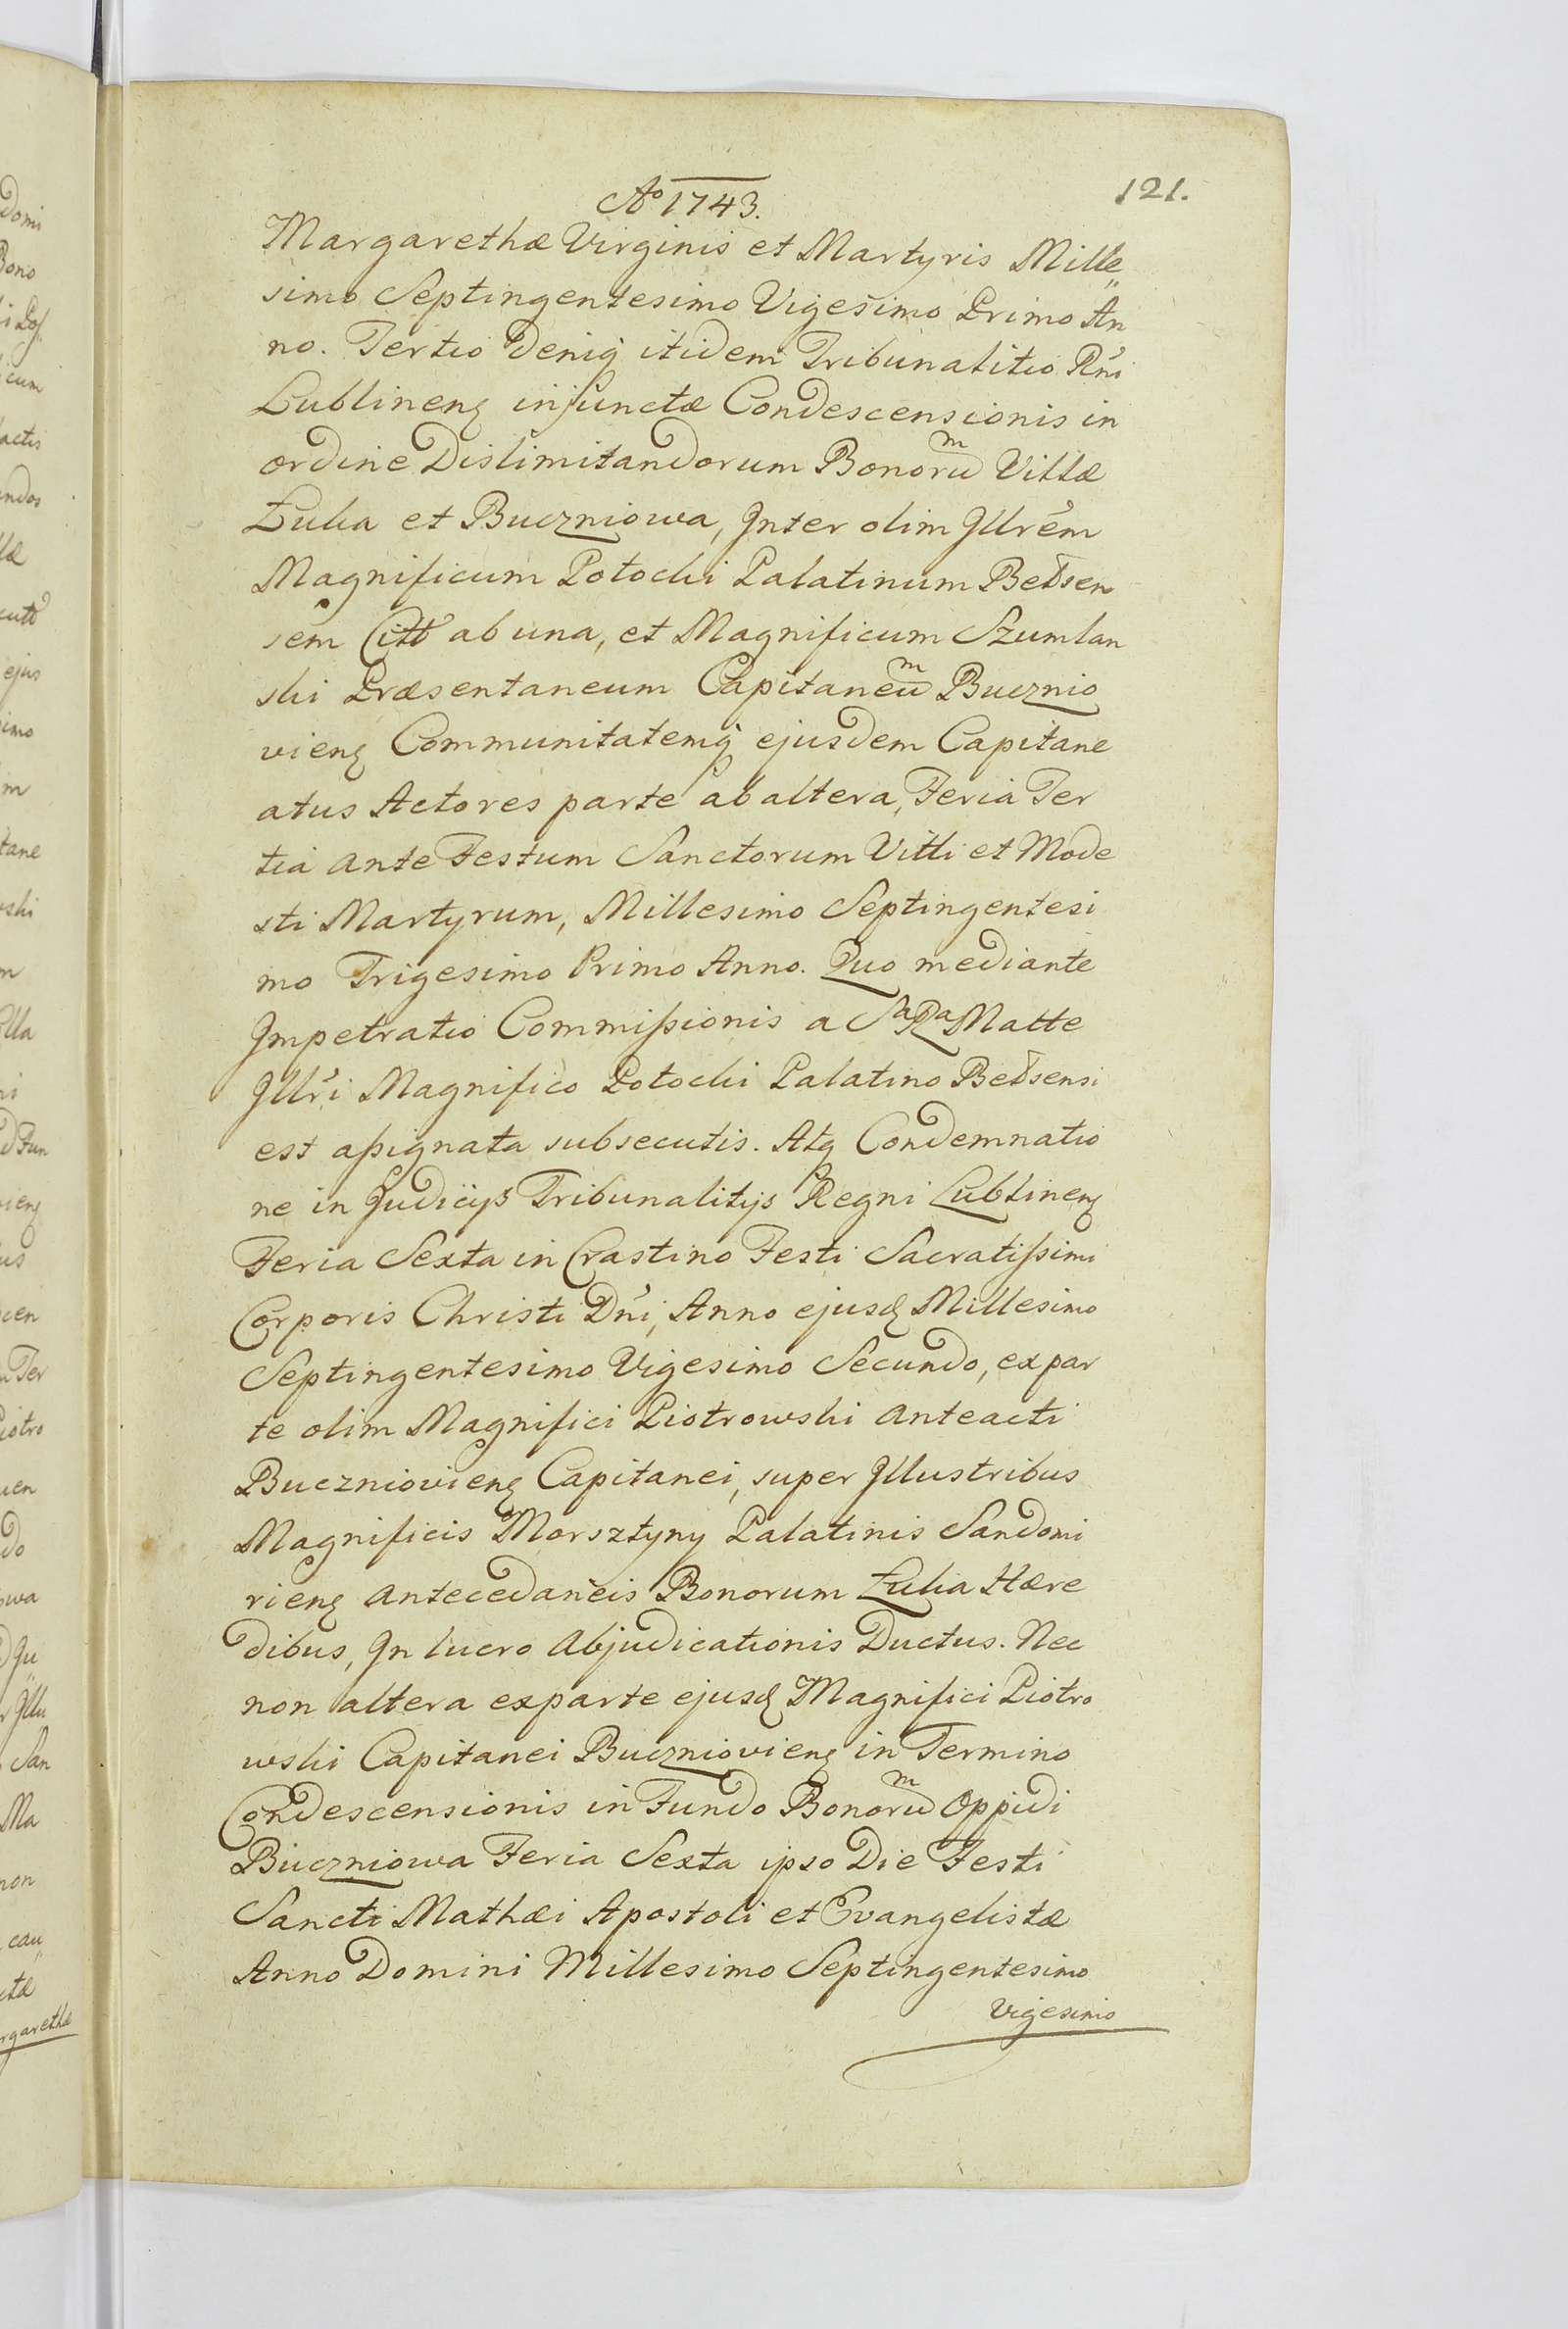 Aº 1743.
121.
Margarethæ Virginis et Martyris Mille„
simo Septingentesimo Vigesimo Primo An
no. Tertio deniq itidem Tribunalitio Rńi
Lublineng injunctæ Condescensionis in
ordine Dislimitandorum Bonorum Villæ
Łuka et Buczniowa, Inter olim Illrém
Magnificum Potocki Palatinum Bełsen
sem Citt ab una, et Magnificum Szumlan
ski Præsentaneum Capitaneum Bucznio
vieng Communitatemq ejusdem Capitane
atus Actores parte ab altera, Feria Ter
tia ante Festum Sanctorum Vitti et Mode
sti Martyrum, Millesimo Septingentesi
mo Trigesimo Primo Anno. Quo mediante
Impetratio Commissionis a Sa Ra Matte
Illrí Magnifico Potocki Palatino Bełsensi
est assignata subsecutis. Atq Condemnatio
ne in Judicijs Tribunalitijs Regni Lublineng
Feria Sexta in Crastino Festi Sacratissimi
Corporis Christi Dńi, Anno ejusd Millesimo
Septingentesimo Vigesimo Secundo, ex par
te olim Magnifici Piotrowski anteacti
Buczniovieng Capitanei, super Illustribus
Magnificis Morsztyny Palatinis Sandomi
rieng antecedaneis Bonorum Łuka Hære
dibus, In lucro Abjudicationis Ductus. Nec
non altera exparte ejusd Magnifici Piotro
wski Capitanei Buczniovieng in Termino
Condescensionis in Fundo Bonorum Oppidi
Buczniowa Feria Sexta ipso Die Festi
Sancti Mathæi Apostoli et Evangelistæ
Anno Domini Millesimo Septingentesimo
Vigesimo